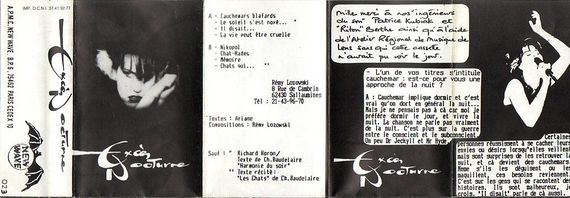 MP-DCN1.37419277
A.P.M.C NEW WAVE, B.P.6, 75462 PARIS CEDEX 10
Excès
Nocturne
NEW WAVE
023
Excès
Nocturne
A - Cauchemars blafards
- Le soleil s'est noré... *
- Il disait...
- La vie peut être cruelle
B - Nikopol
- Chat-Rades
- Mémoire
- Chats sol... **
Rémy Lozowski
8 Rue de Cambrin
62430 Sallaumines
Tél : 21-43-96-70
Textes : Ariane
Compositions : Rémy Lozowski
Sauf : * Richard Horon/
Texte de Ch.Baudelaire
"Harmonie du soir"
** Texte récité:
"Les Chats" de Ch.Baudelaire
Mille merci à nos ingénieurs
du son Patrice Kubiak et
"Riton" Berthe ainsi qu'à l'aide
de l'Atelier Régional de Musique de
Lens sans qui cette cassette
n'aurait pu voir le jour.
- L'un de vos titres s'intitule
cauchemar : est-ce pour vous une
approche de la nuit ?
A : Cauchemar implique dormir et c'est
vrai qu'on dort en général la nuit...
Mais je ne pensais pas à çà car moi je
préfère dormir le jour, et vivre la
nuit. La chanson ne parle pas vraiment
de la nuit. C'est plus sur la guerre
entre le conscient et le subconscient
Un peu Dr Jeckyll et Mr Hyde
Certaines
personnes réussissent à ne cacher leurs
envies ou désirs lorsqu'elles veillent
mais sont surprises de les retrouver la
nuit, et çà devient des cauchemars.
Même s'ils les déguisent ou les
maquillent, ces besoins reviennent.
C'est sur les gens qui se racontent des
histoires. Ils sont malheureux, je
crois. "Il disait" parle de çà aussi.